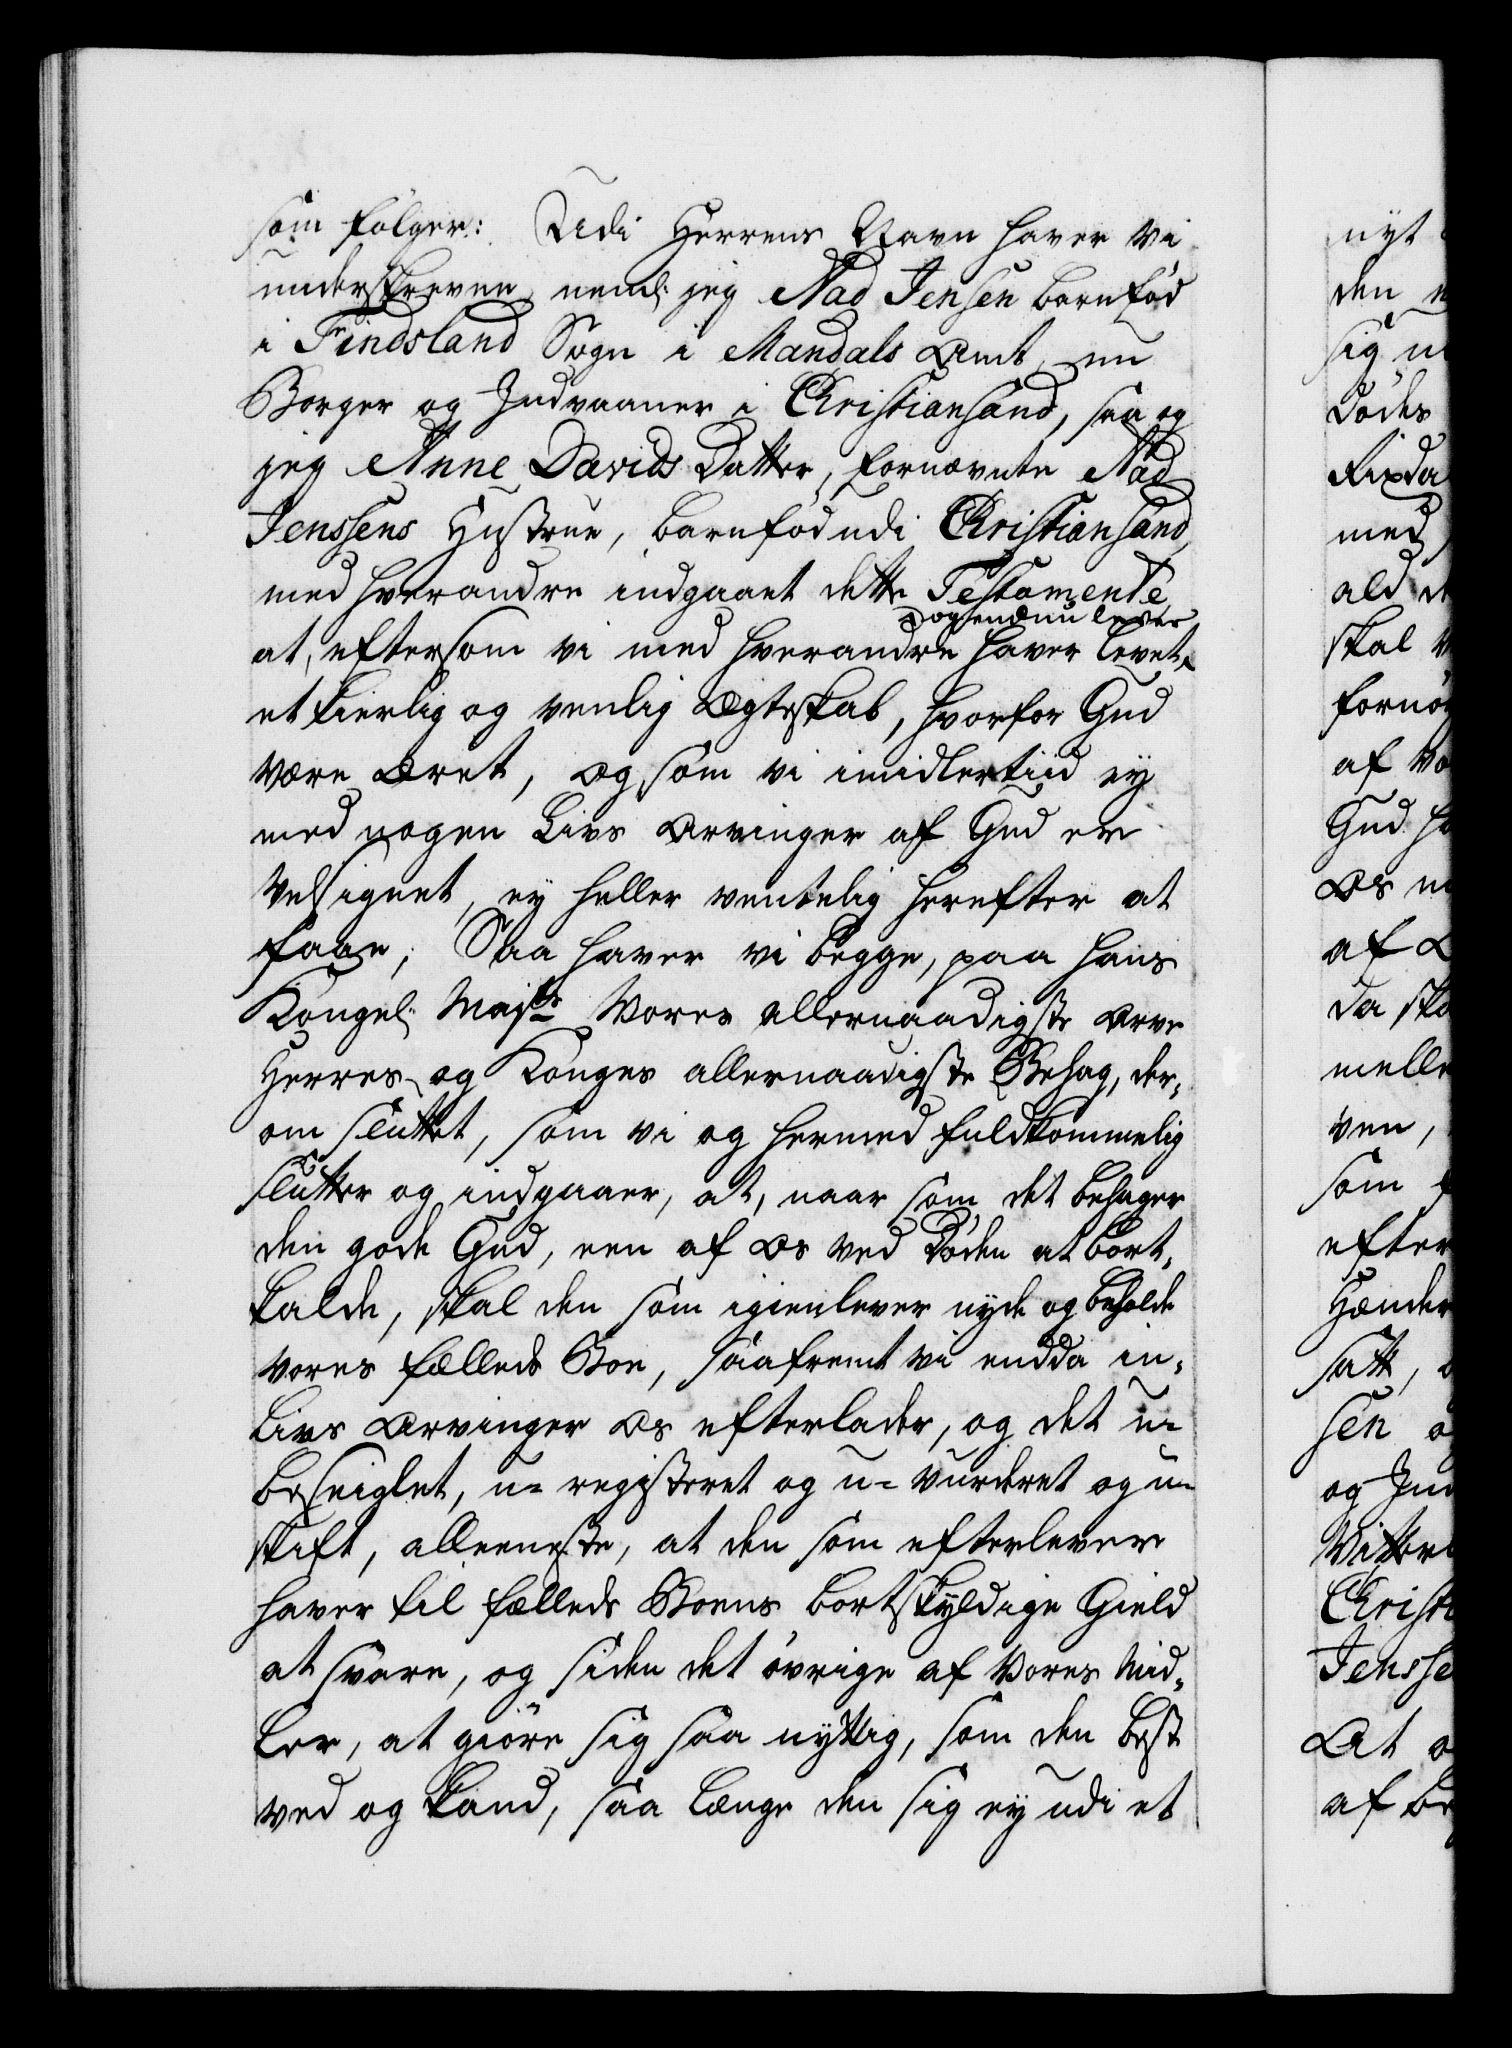 som følger: Udi Herrens Navn haver vi
underskrevne, neml: jeg Aad Jensen barnfød
i Findsland Sogn i Mandals Amt, nu
Borger og Indvaaner i Christiansand, saa og
jeg Anne Davids Datter, fornævnte Aad
Jenssens Hustrue, barnfød udi Christiansand,
med hverandre indgaaet dette Testamente
og endnu lever
at, eftersom vi med hverandre haver levet,
et kierlig og venlig Ægteskab, hvorfor Gud
være Æret, og som vi imidlertiid ey
med nogen Livs Arvinger af Gud er
velsignet, ey heller ventelig herefter at
faae; Saa haver vi begge, paa Hans
Kongel: Maj:ts Vores allernaadigste Arve
Herres og Konges allernaadigste Behag, der-
om sluttet, som vi og hermed fuldkommelig
slutter og indgaaer, at, naar som det behager
den gode Gud, een af os ved Døden at bort-
kalde, skal den som igienlever nyde og beholde
vores fælleds Boe, saafremt vi endda in-
Livs Arvinger os efterlader, og det u-
beseiglet, u-registeret og u-vurderet og u-
skift, alleeneste, at den som efterlever
haver til fælleds Boens bortskyldige Gield
at svare, og siden det øvrige af Vores Mid-
ler, at giøre sig saa nyttig, som den best
ved og kand, saa længe den sig ey udi et
nyt
den
sig
Døds
Rixda
med
ald
skal
fornøy
af
Gud
os
af
da
melle
ven,
som
efter
Hænder
satt,
sen
og Ind
Vitterl
Christi
Jensse
At
af